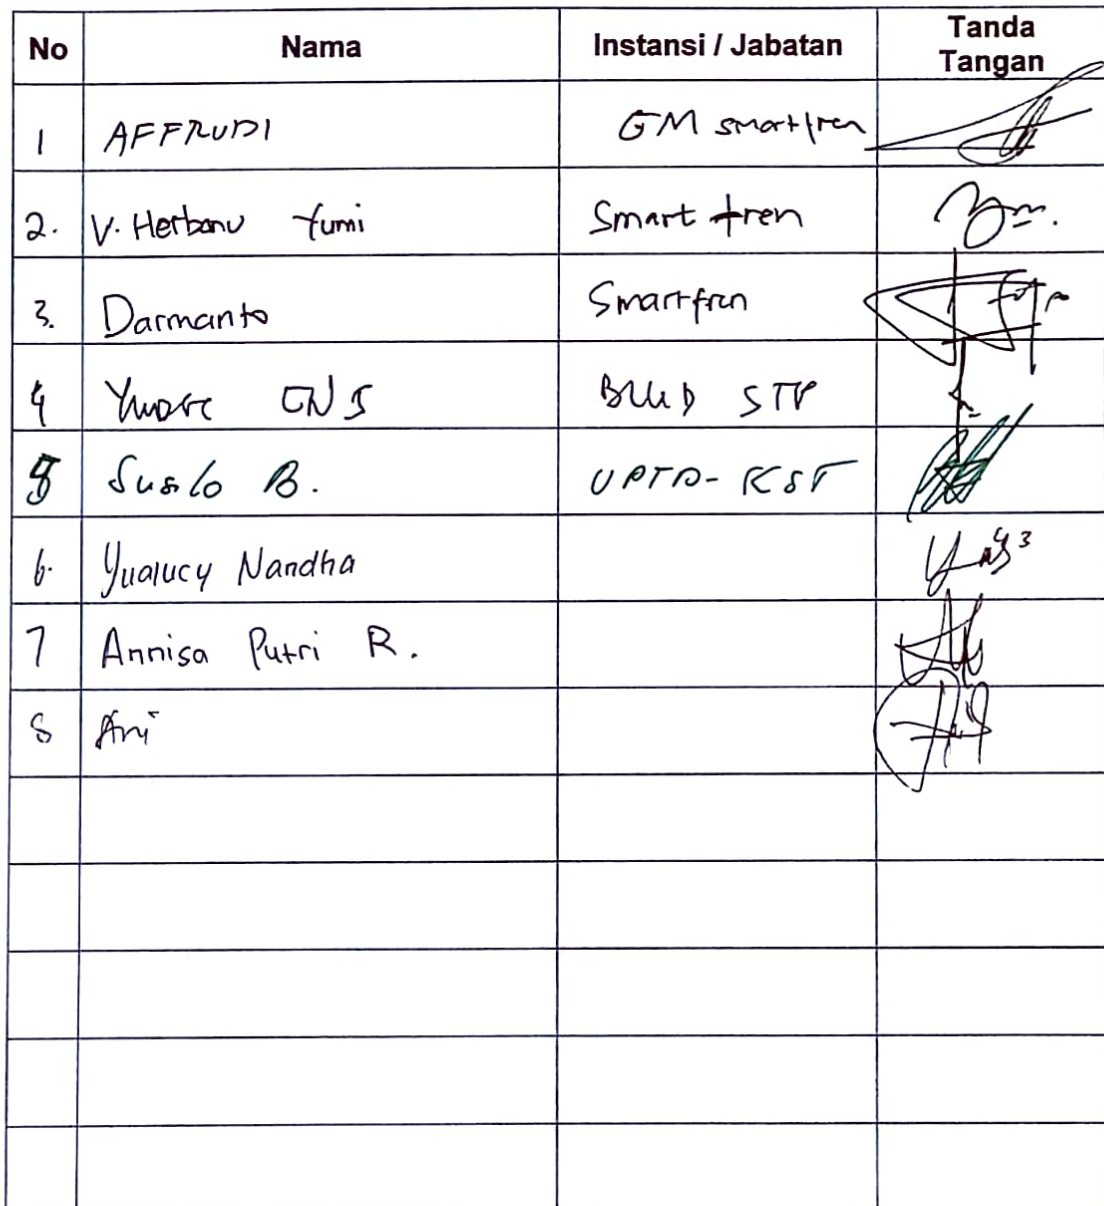 No Nama Instansi / Jabatan Tanda Tangan
1 AFFRUDI GM smartfren
2. V. Herbanu Yumi Smartfren
3. Darmanto Smartfren
4 BLUD STP
5 Susilo B. UPTD-KST
6. Yualucy Nandha
7 Annisa Putri R.
8 Ari